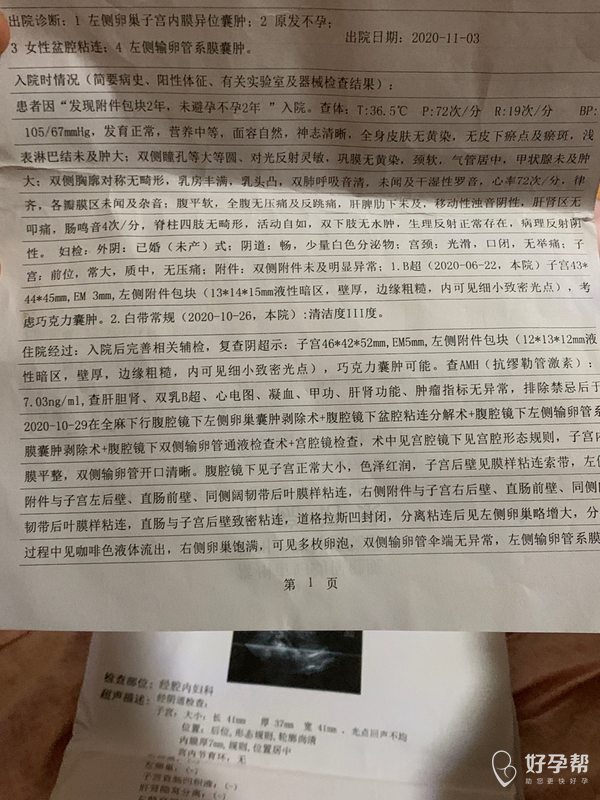 出院诊断：1 左侧卵巢子宫内膜异位囊肿；2 原发不孕；
出院日期：2020-11-03
3 女性盆腔粘连；4 左侧输卵管系膜囊肿。
入院时情况（简要病史、阳性体征、有关实验室及器械检查结果）：
患者因“发现附件包块2年，未避孕不孕2年 ”入院。查体：T:36.5℃ P:72次/分 R:19次/分 BP:
105/67mmHg，发育正常，营养中等，面容自然，神志清晰，全身皮肤无黄染，无皮下瘀点及瘀斑，浅
表淋巴结未及肿大；双侧瞳孔等大等圆、对光反射灵敏，巩膜无黄染，颈软，气管居中，甲状腺未及肿
大；双侧胸廓对称无畸形，乳房丰满，乳头凸，双肺呼吸音清，未闻及干湿性罗音，心率72次/分，律
齐，各瓣膜区未闻及杂音；腹平软，全腹无压痛及反跳痛，肝脾肋下未及，移动性浊音阴性，肝肾区无
叩痛，肠鸣音4次/分，脊柱四肢无畸形，活动自如，双下肢无水肿，生理反射正常存在，病理反射阴
性。 妇检：外阴：已婚（未产）式；阴道：畅，少量白色分泌物；宫颈：光滑，口闭，无举痛；子
宫：前位，常大，质中，无压痛；附件：双侧附件未及明显异常；1.B超（2020-06-22，本院）子宫43*
44*45mm,EM 3mm,左侧附件包块（13*14*15mm液性暗区，壁厚，边缘粗糙，内可见细小致密光点），考
虑巧克力囊肿。2.白带常规（2020-10-26，本院）:清洁度III度。
住院经过：入院后完善相关辅检，复查阴超示：子宫46*42*52mm,EM5mm,左侧附件包块（12*13*12mm液
性暗区，壁厚，边缘粗糙，内可见细小致密光点），巧克力囊肿可能。查AMH（抗缪勒管激素）：
7.03ng/ml,查肝胆肾、双乳B超、心电图、凝血、甲功、肝肾功能、肿瘤指标无异常，排除禁忌后于
2020-10-29在全麻下行腹腔镜下左侧卵巢囊肿剥除术+腹腔镜下盆腔粘连分解术+腹腔镜下左侧输卵管系
膜囊肿剥除术+腹腔镜下双侧输卵管通液检查术+宫腔镜检查，术中见宫腔镜下见宫腔形态规则，子宫内
膜平整，双侧输卵管开口清晰。腹腔镜下见子宫正常大小，色泽红润，子宫后壁见膜样粘连索带，左侧
附件与子宫左后壁、直肠前壁、同侧阔韧带后叶膜样粘连，右侧附件与子宫右后壁、直肠前壁、同侧
韧带后叶膜样粘连，直肠与子宫后壁致密粘连，道格拉斯凹封闭，分离粘连后见左侧卵巢略增大，分
过程中见咖啡色液体流出，右侧卵巢饱满，可见多枚卵泡，双侧输卵管伞端无异常，左侧输卵管系膜
第 1 页
检查部位：经腔内妇科
超声描述：经阴道检查：
子宫：大小：长 41mm 厚 37mm 宽 41mm ，光点回声不均
位置：后位,形态规则,轮廓尚清
内膜厚7mm,规则,位置居中
宫内节育环，无
左卵巢：(-)
子宫直肠凹积液：(-)
肝肾隐窝分离：(-)
好孕帮
助您更快好孕